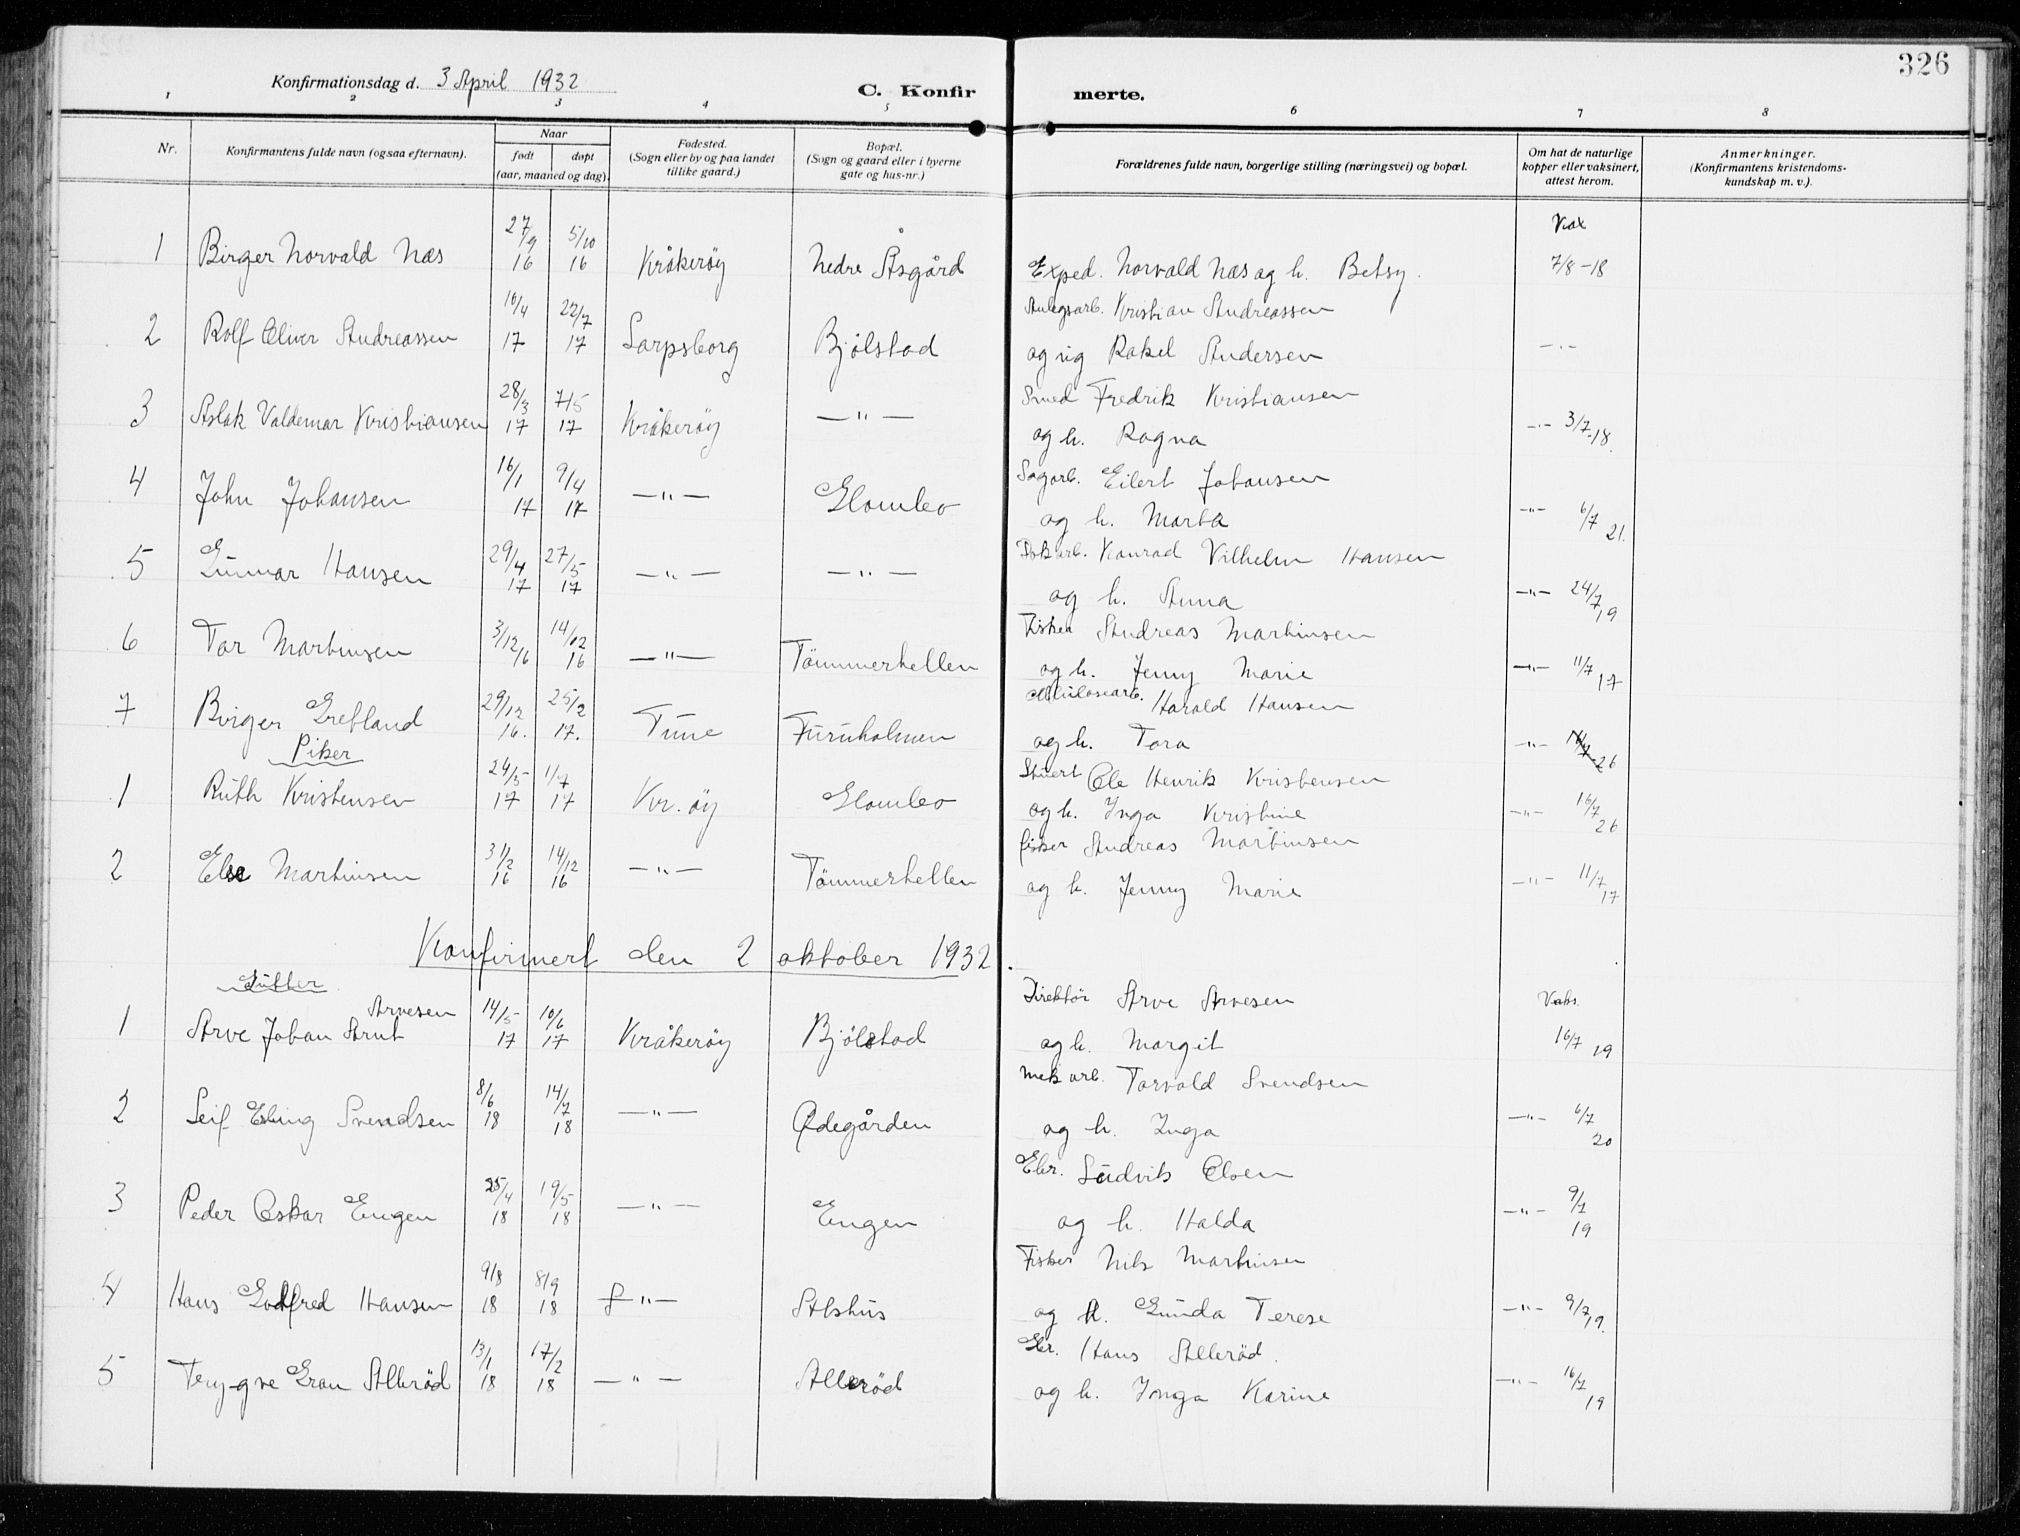 326
Konfirmationsdag d. 3 April 1932
C. Konfirmerte.
1 2 3 4 5 6 7 8
Nr.
Konfirmantens fulde navn (ogsaa efternavn).
Naar
født døpt
(aar, maaned og dag).
Fødested.
(Sogn eller by og paa landet
tillike gaard.)
Bopæl.
(Sogn og gaard eller i byerne
gate og hus-nr.)
Forældrenes fulde navn, borgerlige stilling (næringsvei) og bopæl.
Om hat de naturlige
kopper eller vaksinert,
attest herom.
Anmerkninger.
(Konfirmantens kristendoms-
kundskap m. v.).
Vax
1 Birger Norvald Næs 27/9 16 5/10 16 Kråkerøy Nedre Åsgård Exped. Norvald Næs og h. Betsy. 7/8-18
2 Rolf Oliver Andreassen 16/4 17 22/7 17 Sarpsborg Bjølstad Anlegsarb. Kristian Andreassen
og ug Rakel Andersen -"-
3 Aslak Valdemar Kristiansen 28/3 17 7/5 17 Kråkerøy -"- Smed Fredrik Kristiansen
og h. Ragna -"- 3/7-18.
4 John Johansen 16/1 17 9/4 17 -"- Glombo Sagarb. Eilert Johansen
og h. Marta -"- 6/7 21.
5 Gunnar Hansen 29/4 17 27/5 17 -"- -"- Dokarb. Konrad Vilhelm Hansen
og h. Anna -"- 24/7 19
6 Tor Martinsen 3/12 16 14/12 16 -"- Tømmerhellen Fisker Andreas Martinsen
og h. Jenny Marie -"- 11/7 17
7 Birger Grefland 29/12 16. 25/2 17. Tune Furuholmen Celulosearb. Harald Hansen
og h. Tora -"- 26
Piker
1 Ruth Kristensen 24/5 17 1/7 17 Kr.øy Glombo Stuert Ole Henrik Kristensen
og h. Inga Kristine -"- 16/7 26
2 Else Martinsen 3/12 16 14/12 16 -"- Tømmerhellen fisker Andreas Martinsen
og h. Jenny Marie -"- 11/7 17
Konfirmert den 2 oktober 1932.
Gutter
Arvesen
1 Arve Johan Arnt 14/5 17 10/6 17 Kråkerøy Bjølstad Direktør Arve Arvesen Vaks.
og h. Margit 16/7 19
2 Leif Erling Svendsen 8/6 18 14/7 18 -"- Ødegården Mek arb. Torvald Svendsen
og h. Inga -"- 6/7 20
3 Peder Oskar Engen 25/4 18 19/5 18 -"- Engen Gbr. Ludvik Olsen
og h. Halda -"- 9/7 19
4 Hans Godfred Hansen 9/8 18 8/9 18 -"- Alshus Fisker Nils Martinsen
og h. Gunda Terese -"- 9/7 19.
5 Teny-gve Gran Allerød 13/1 18 17/2 18 -"- Allerød Gbr. Hans Allerød.
og h. Inga Karine -"- 16/7 19